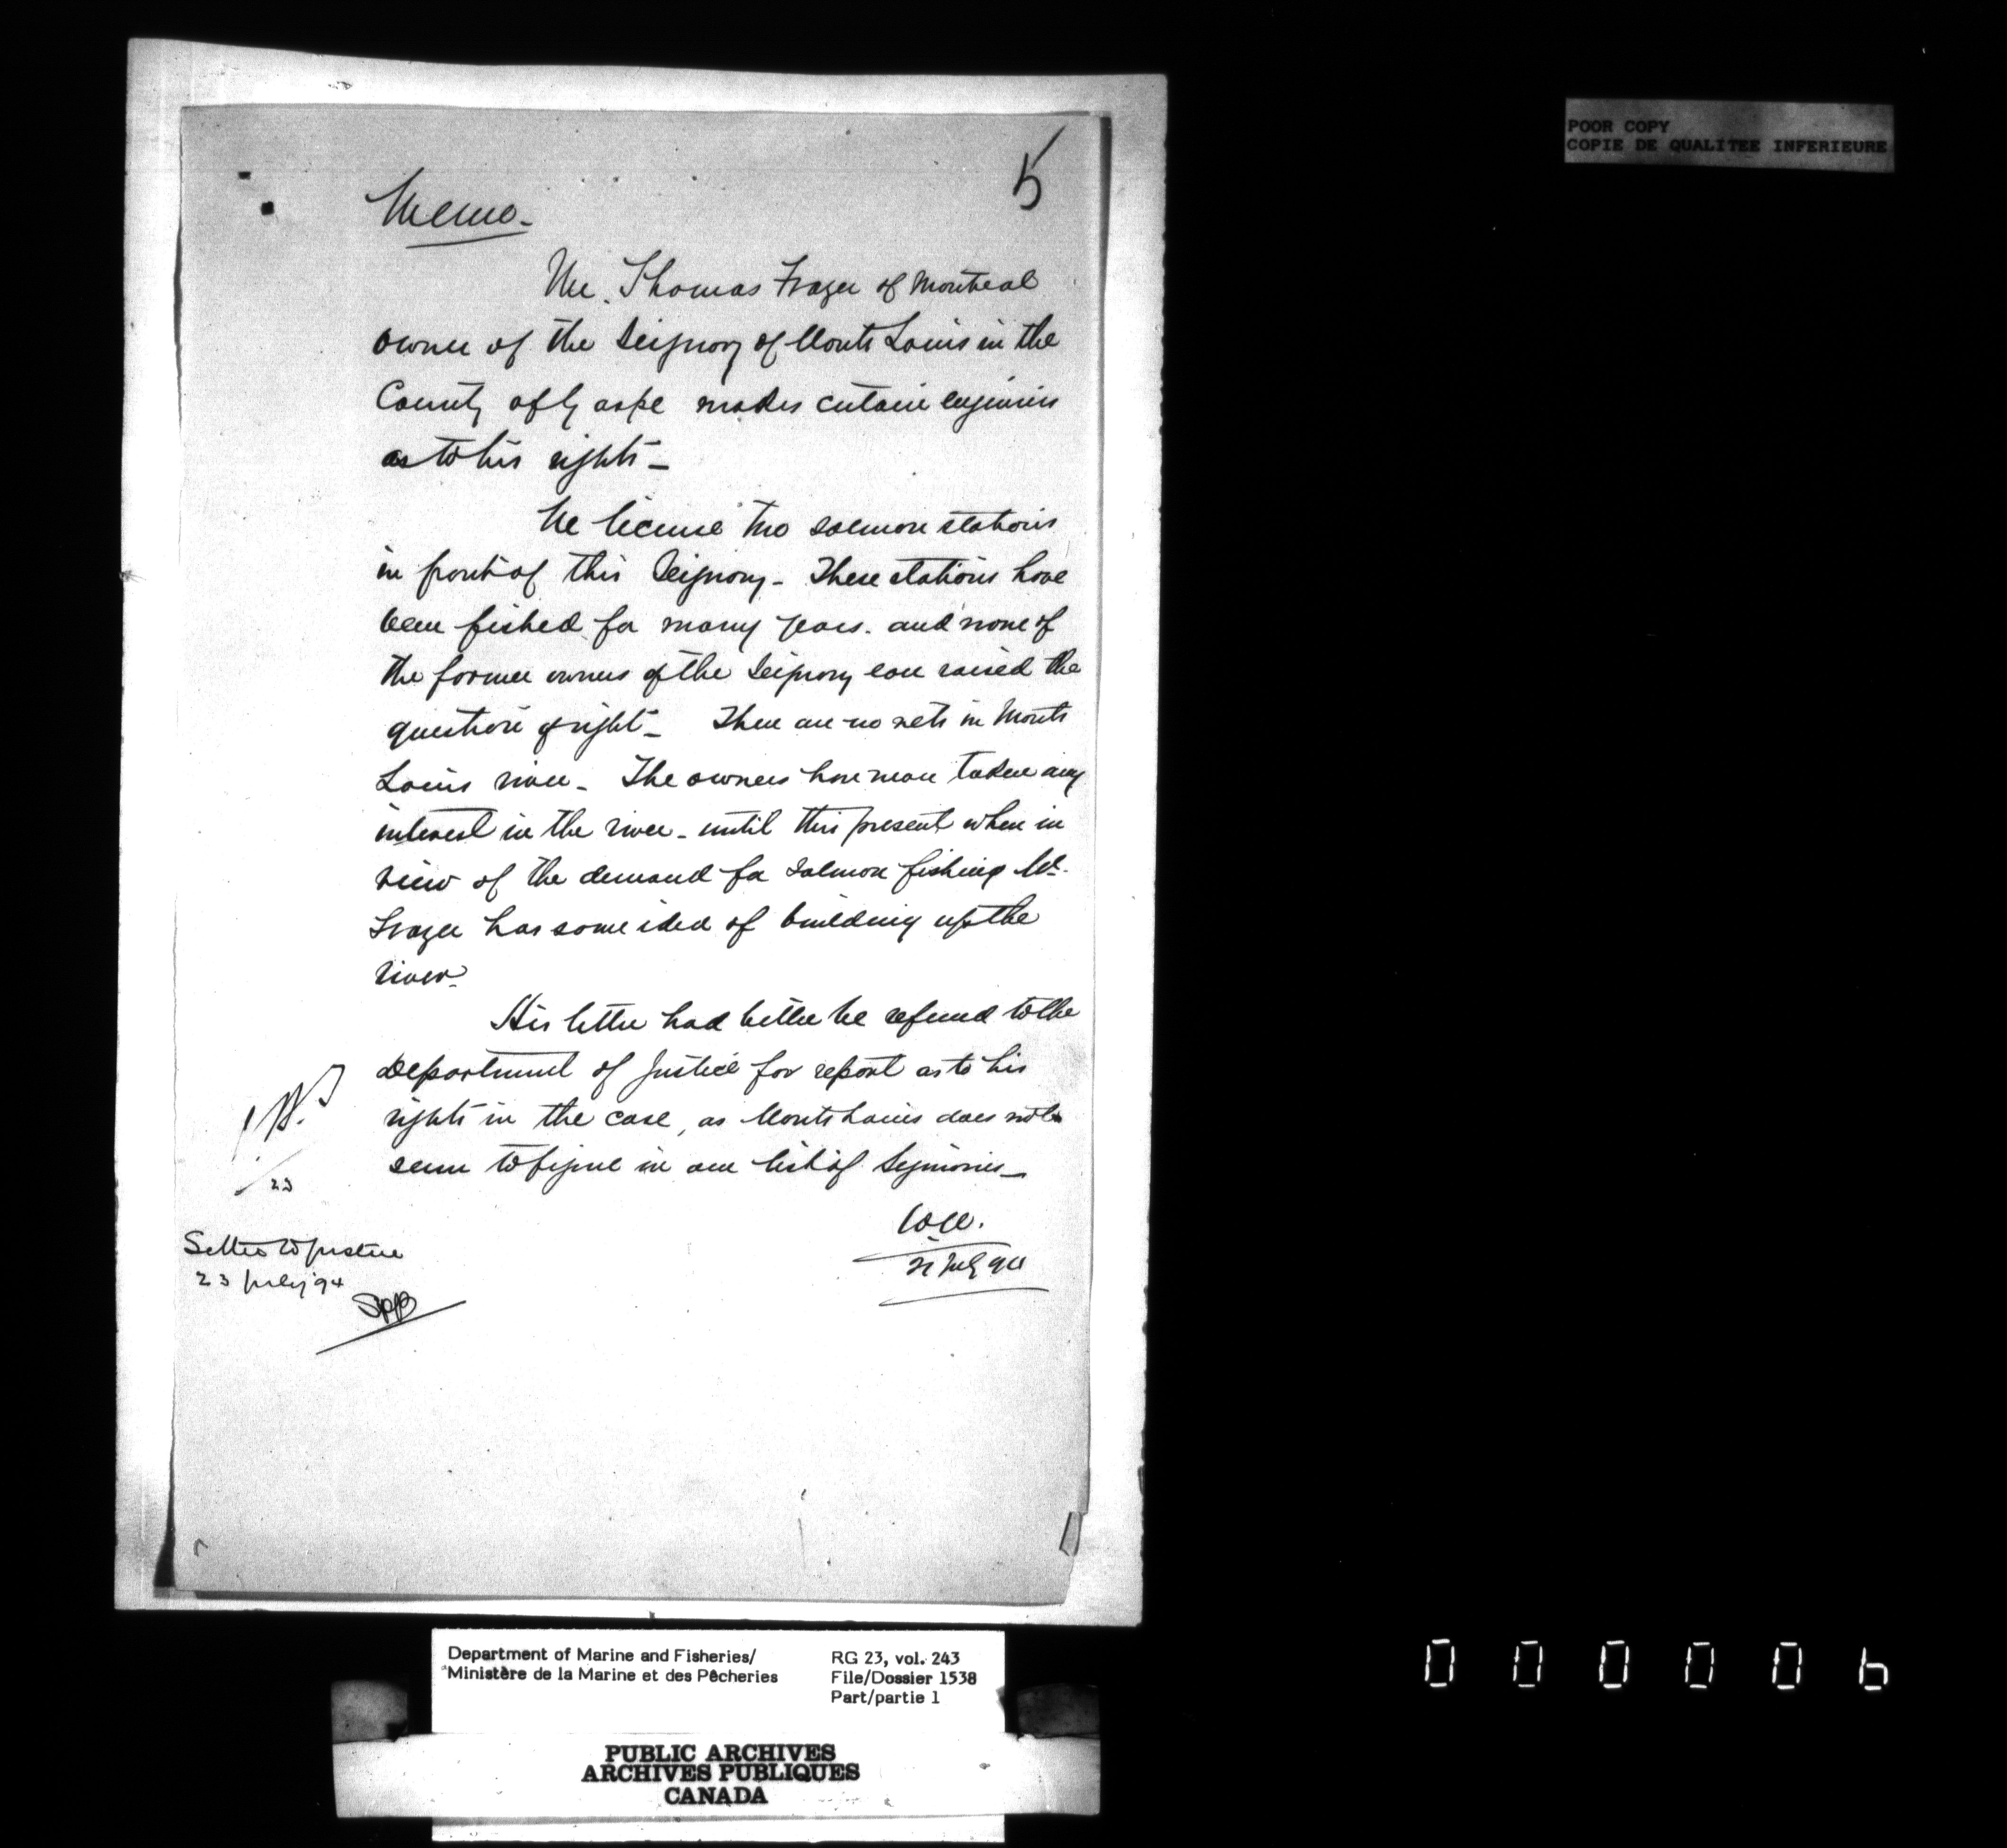 POOR COPY
COPIE DE QUALITEE INFERIEURE
5
Memo.
Mr. Thomas Frazer of Montreal
owner of the Seignory of Monts Louis in the
County of Gaspe makes certain enquiries
as to his rights -
We license two salmon stations
in front of this Seignory - These stations have
been fished for many years. and none of
the former owners of the Seignory ever raised the
question of right - There are no nets in Monts
Louis river - The owners have never taken any
interest in the river - until this present when in
view of the demand for salmon fishing Mr.
Frazer has some idea of building up the
river.
His letter had better be referred to the
Department of Justice for report as to his
rights in the case, as Monts Louis does not
seem to figure in our list of Seignories -
21 July 94
23
Letter to Justice
23 July '94
Department of Marine and Fisheries/
Ministère de la Marine et des Pêcheries
RG 23, vol. 243
File/Dossier 1538
Part/partie 1
PUBLIC ARCHIVES
ARCHIVES PUBLIQUES
CANADA
000006